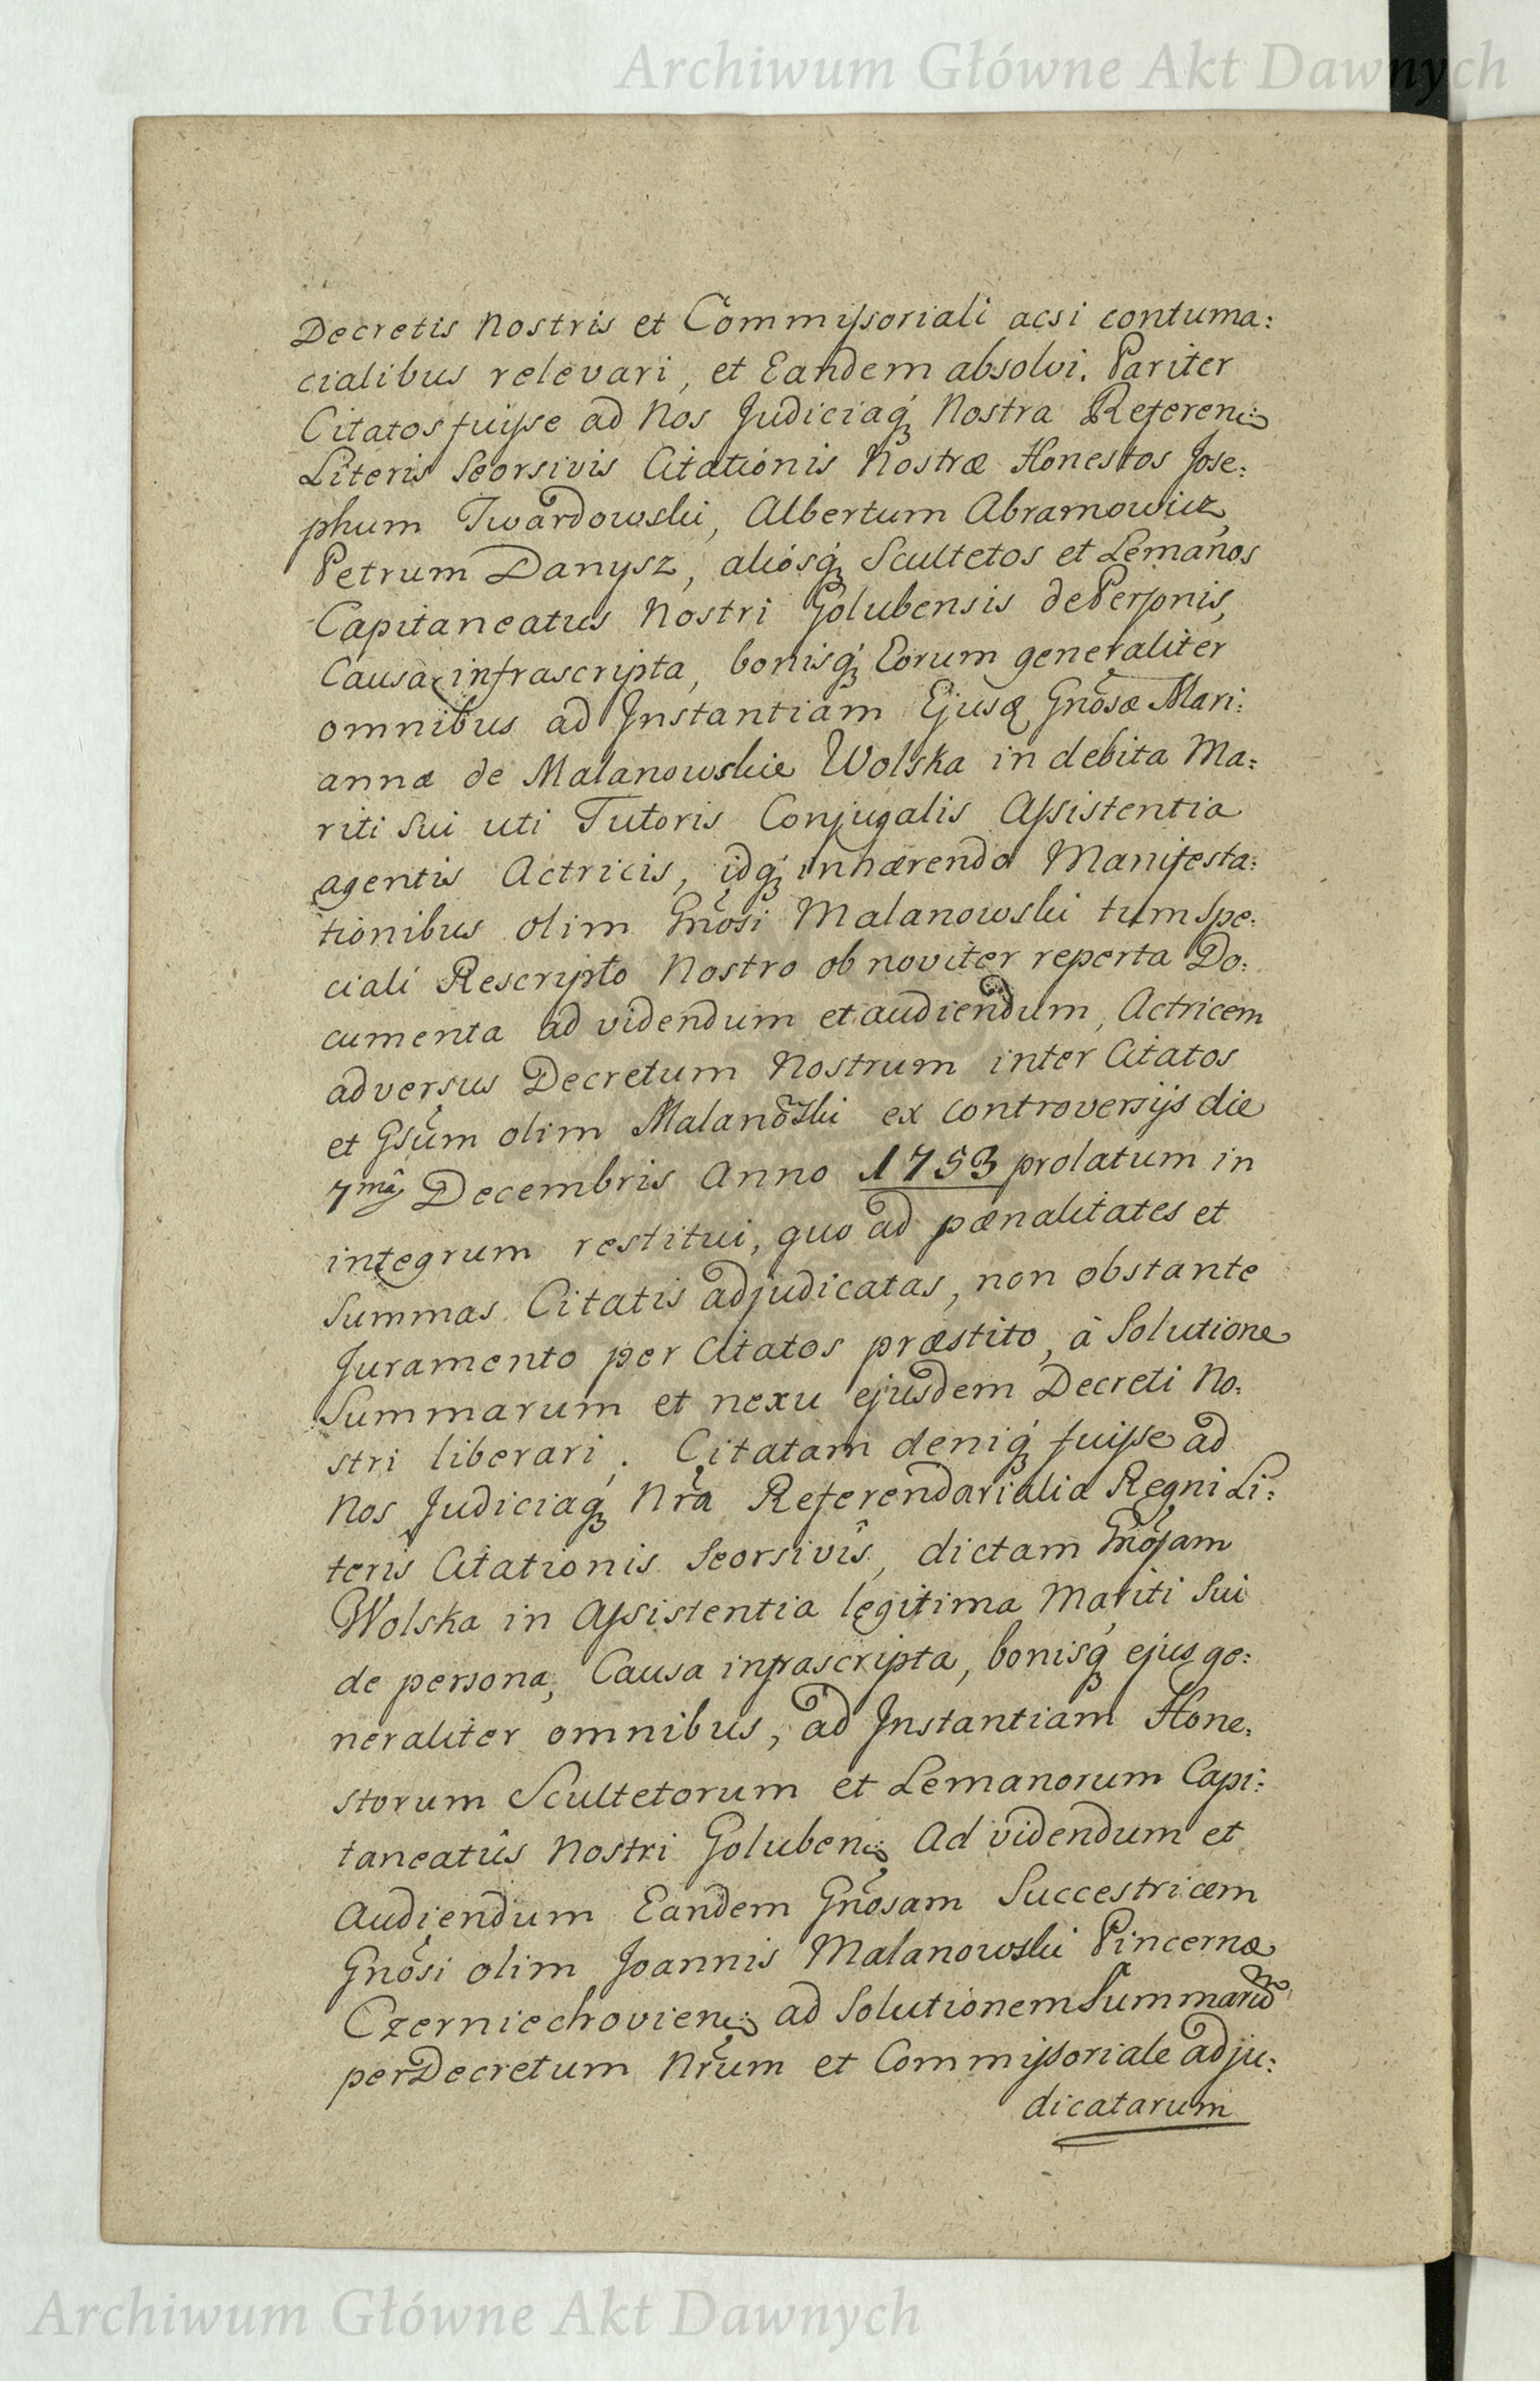 Archiwum Główne Akt Dawnych
Decretis Nostris et Commissoriali acsi contuma:
cialibus relevari, et Eandem absolvi. Pariter
Citatos fuisse ad Nos Judiciaq́ Nostra Referen:
Literis Seorsivis Citationis Nostræ Honestos Jose:
phum Twardowski, Albertum Abramowicz,
Petrum Danysz, aliosq́ Scultetos et Lemanos
Capitaneatus Nostri Golubensis de Personis,
Causa infrascripta, bonisq́ Eorum generaliter
omnibus ad Instantiam Ejusd Gnosæ Mari:
annæ de Malanowskie Wolska in debita Ma:
riti Sui uti Tutoris Conjugalis Assistentia
agentis Actricis, idq́ inhærendo Manifesta:
tionibus olim Gnosi Malanowski tum Spe:
ciali Rescripto Nostro ob noviter reperta Do:
cumenta ad videndum et audiendum, Actricem
adversus Decretum Nostrum inter Citatos
et Gsum olim Malanoski ex controversijs die
7mâ Decembris Anno 1753 prolatum in
integrum restitui, quo ad pænalitates et
Summas Citatis adjudicatas, non obstante
Juramento per Citatos præstito, à Solutione
Summarum et nexu ejusdem Decreti No:
stri liberari. Citatam deniq́ fuisse ad
Nos Judiciaq́ Nra Referendarialia Regni Li:
teris Citationis Seorsivîs, dictam Gnosam
Wolska in Assistentia legitima Mariti Sui
de persona, Causa infrascripta, bonisq́ ejus ge:
neraliter omnibus, ad Instantiam Hone:
storum Scultetorum et Lemanorum Capi:
taneatûs Nostri Goluben: Ad videndum et
Audiendum Eandem Gnosam Succestricem
Gnosi olim Joannis Malanowski Pincernæ
Czerniechovien: ad Solutionem Summarum
per Decretum Nrum et Commissoriale adju:
dicatarum
Archiwum Główne Akt Dawnych